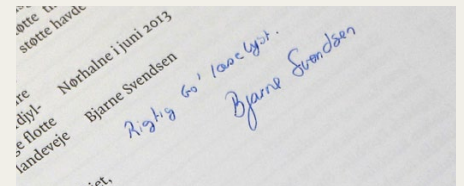 støtte
støtte havde
Nørhalne i juni 2013
Bjarne Svendsen
djyl-
ge flotte
landeveje
Rigtig Go' læselyst.
Bjarne Svendsen